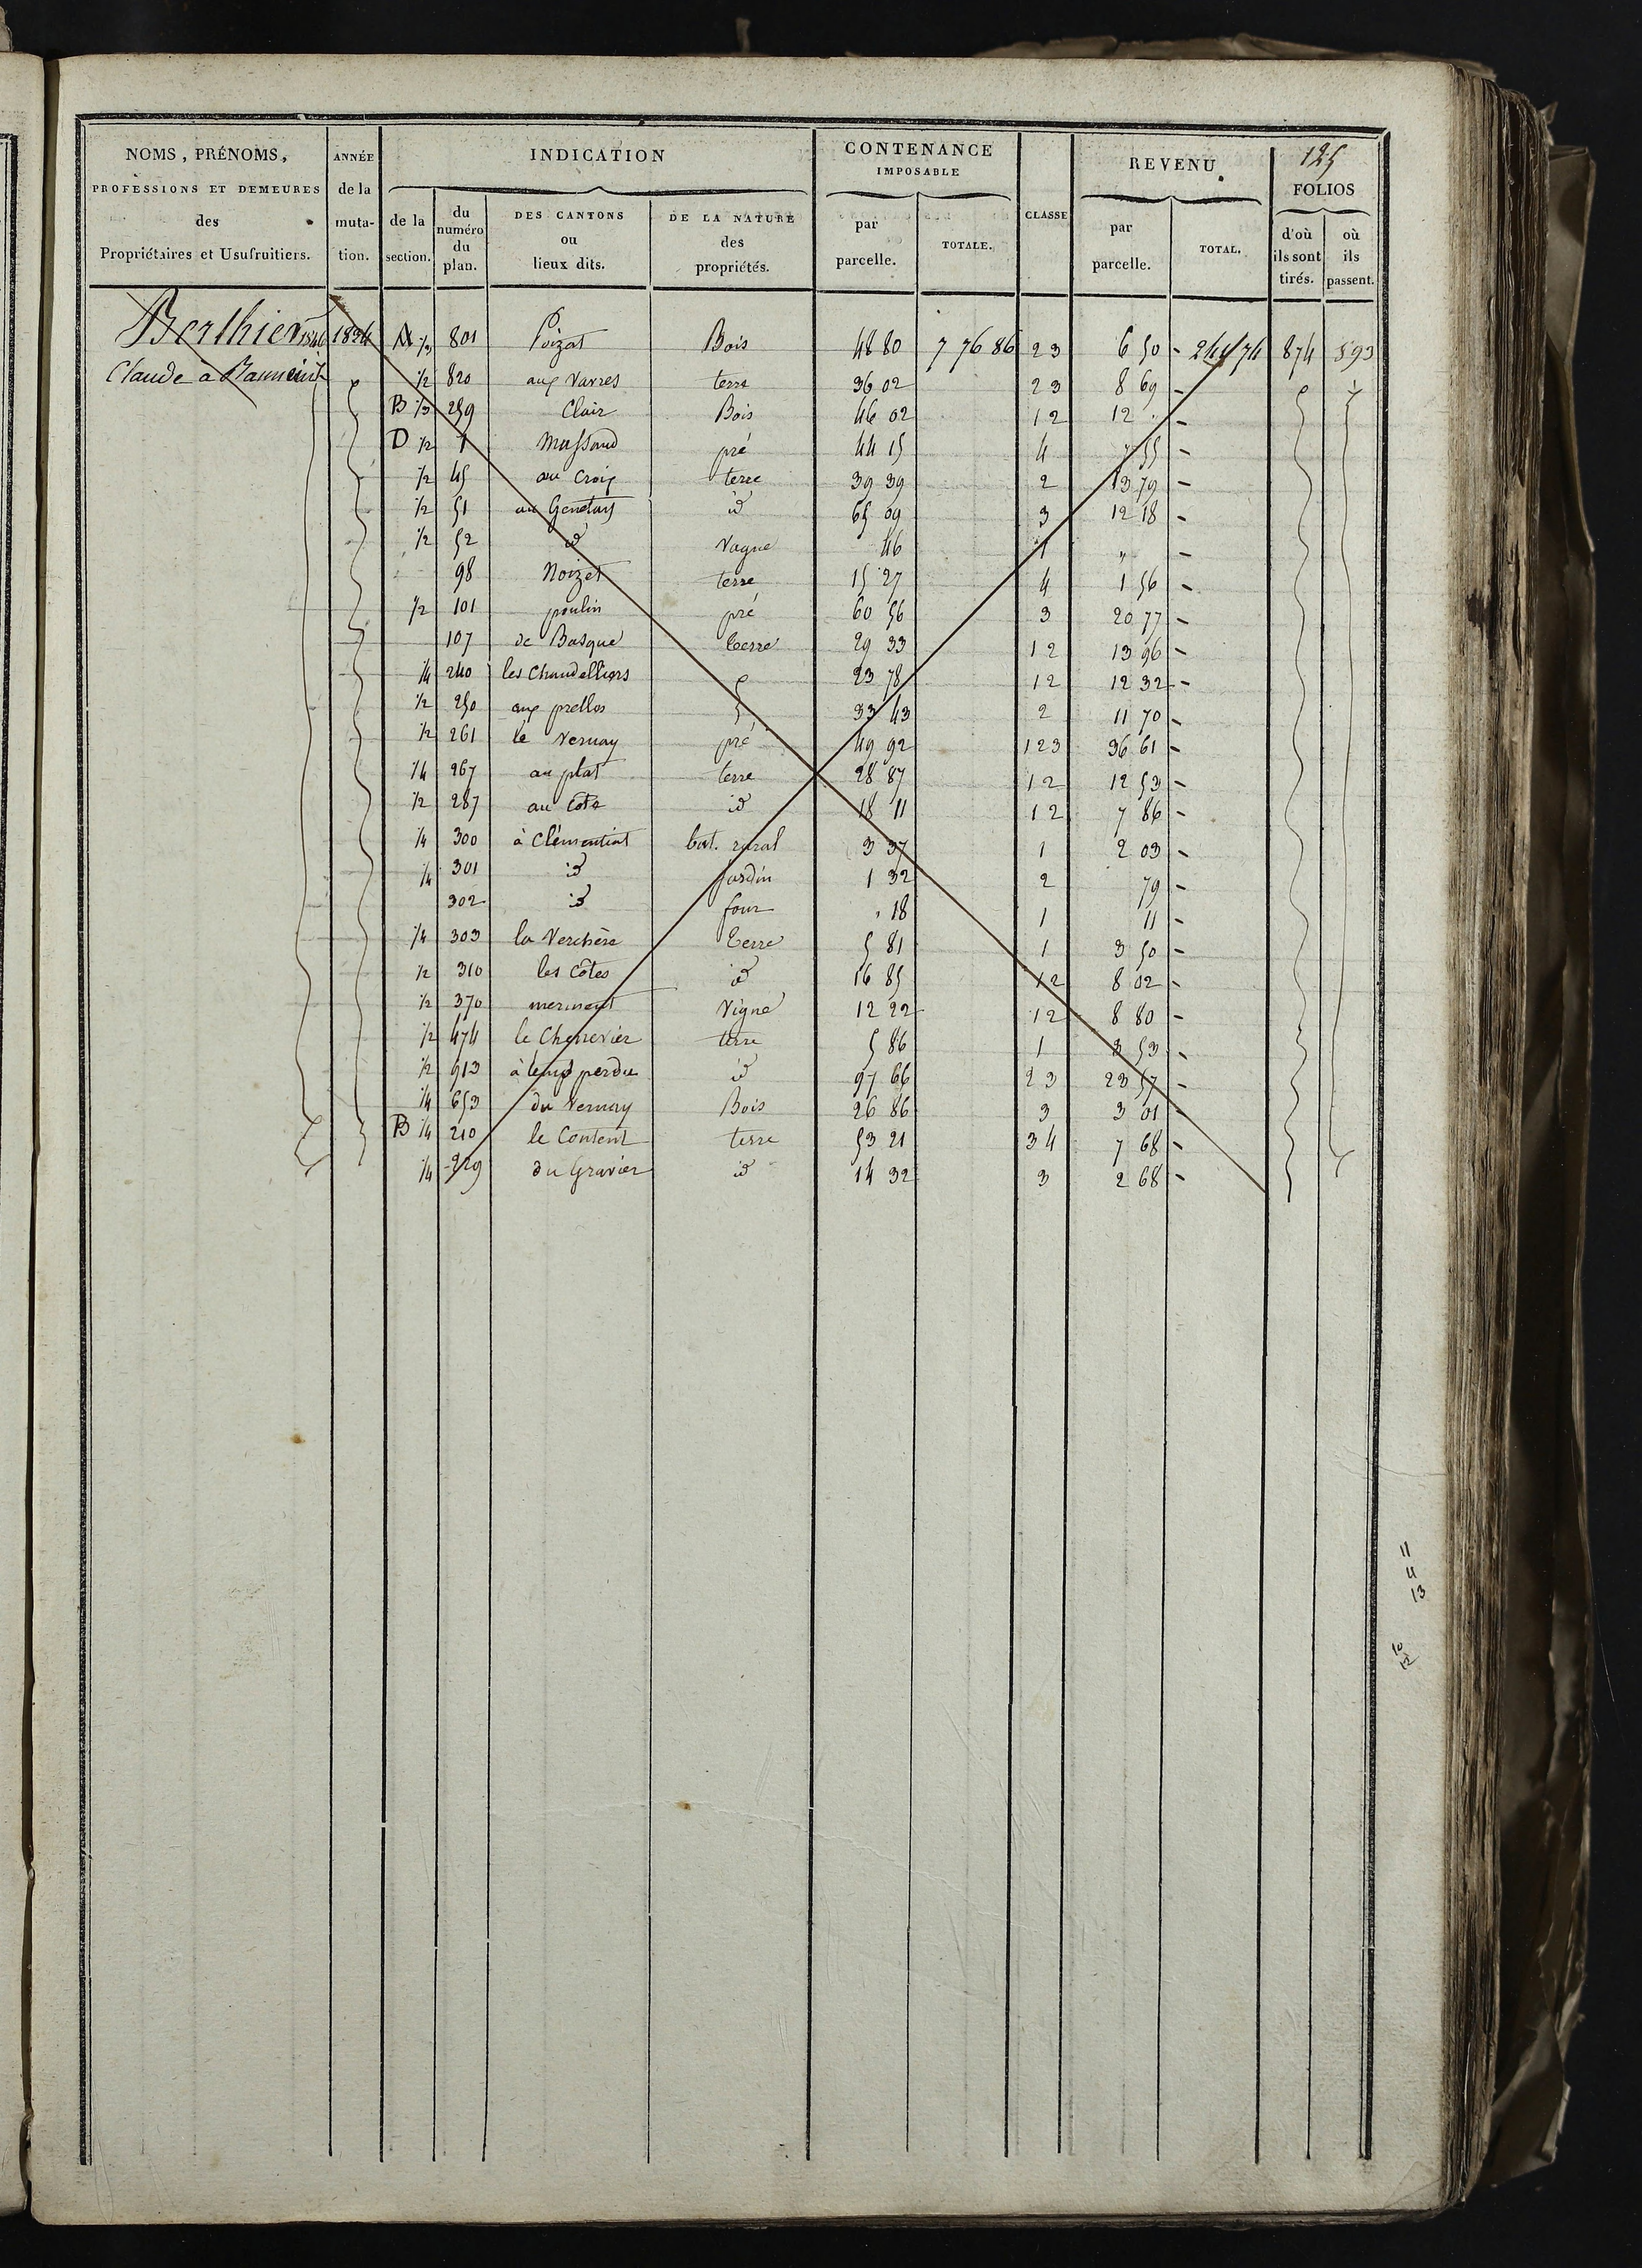 125
NOMS, PRÉNOMS, PROFESSIONS ET DEMEURES des Propriétaires et Usufruitiers.
ANNÉE de la muta-tion.
INDICATION
de la section.
du numéro du plan.
DES CANTONS ou lieux dits.
DE LA NATURE des propriétés.
CONTENANCE IMPOSABLE
par parcelle.
TOTALE.
CLASSE
REVENU.
par parcelle.
TOTAL.
FOLIOS
d'où ils sont tirés.
où ils passent.
Berthier 1834 A 1/3 801 Poizat Bois 48 80 7 76 86 23 6 50 - 244 74 874 593
Claude à 1/2 820 aux Varres terre 36 02 23 8 69 -
B 1/3 259 Clair Bois 46 02 12 12 . -
D 1/2 1 Mussaud pré 44 15 4 7 55 -
1/2 45 au Croix terre 39 39 2 13 79 -
1/2 51 au Genetay id 65 09 3 12 18 -
1/2 52 id Vague 46 1 " -
98 Noizet terre 15 27 4 1 56 -
1/2 101 poulin pré 60 56 3 20 77 -
107 de Basque terre 29 33 12 13 96 -
1/4 240 les Chandelliers 23 78 12 12 32 -
1/2 250 aux prelles 33 43 2 11 70 -
1/2 261 le Vernay pré 49 92 123 36 61 -
1/4 267 au plat terre 28 87 12 12 53 -
1/2 287 au Cote id 18 11 12 7 86 -
1/4 300 à Clémentiat bat. rural 3 37 1 2 03 -
1/4 301 id jardin 1 32 2 79 -
302 id four " 18 1 11 -
1/4 303 la Verchère terre 5 81 1 3 50 -
1/2 310 les Côtes id 16 85 12 8 02 -
1/2 370 Vigne 12 22 12 8 80 -
1/2 474 le Chenevier terre 5 86 1 3 53 -
1/2 513 à temps perdu id 97 66 23 23 57 -
1/4 653 du Vernay Bois 26 86 3 3 01 -
B 1/4 210 le Content terre 53 21 34 7 68 -
1/4 229 du Gravier id 14 32 3 2 68 -
11
4
13
10
12